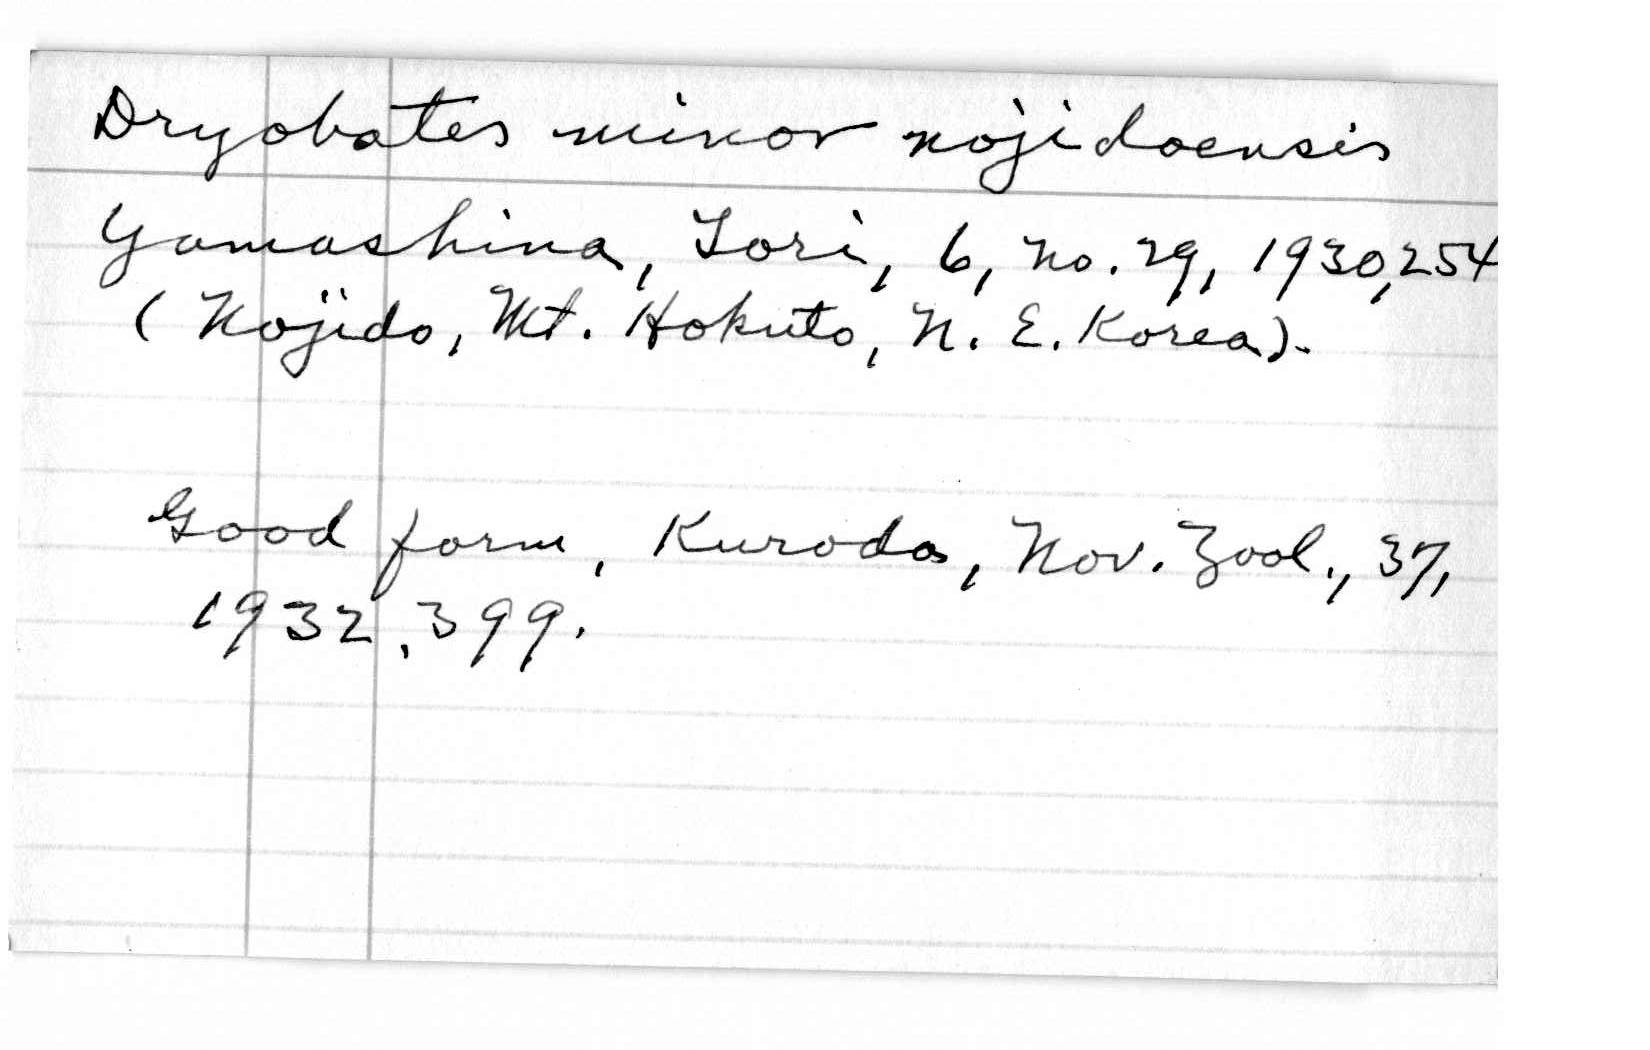 Dryobates minor nojidoensis
Yamashina, Tori, 6, no. 29, 1930, 254
(Nojido, Mt. Hokuto, N. E. Korea).
Good form, Kuroda, Nov. Zool., 37,
1932, 399.